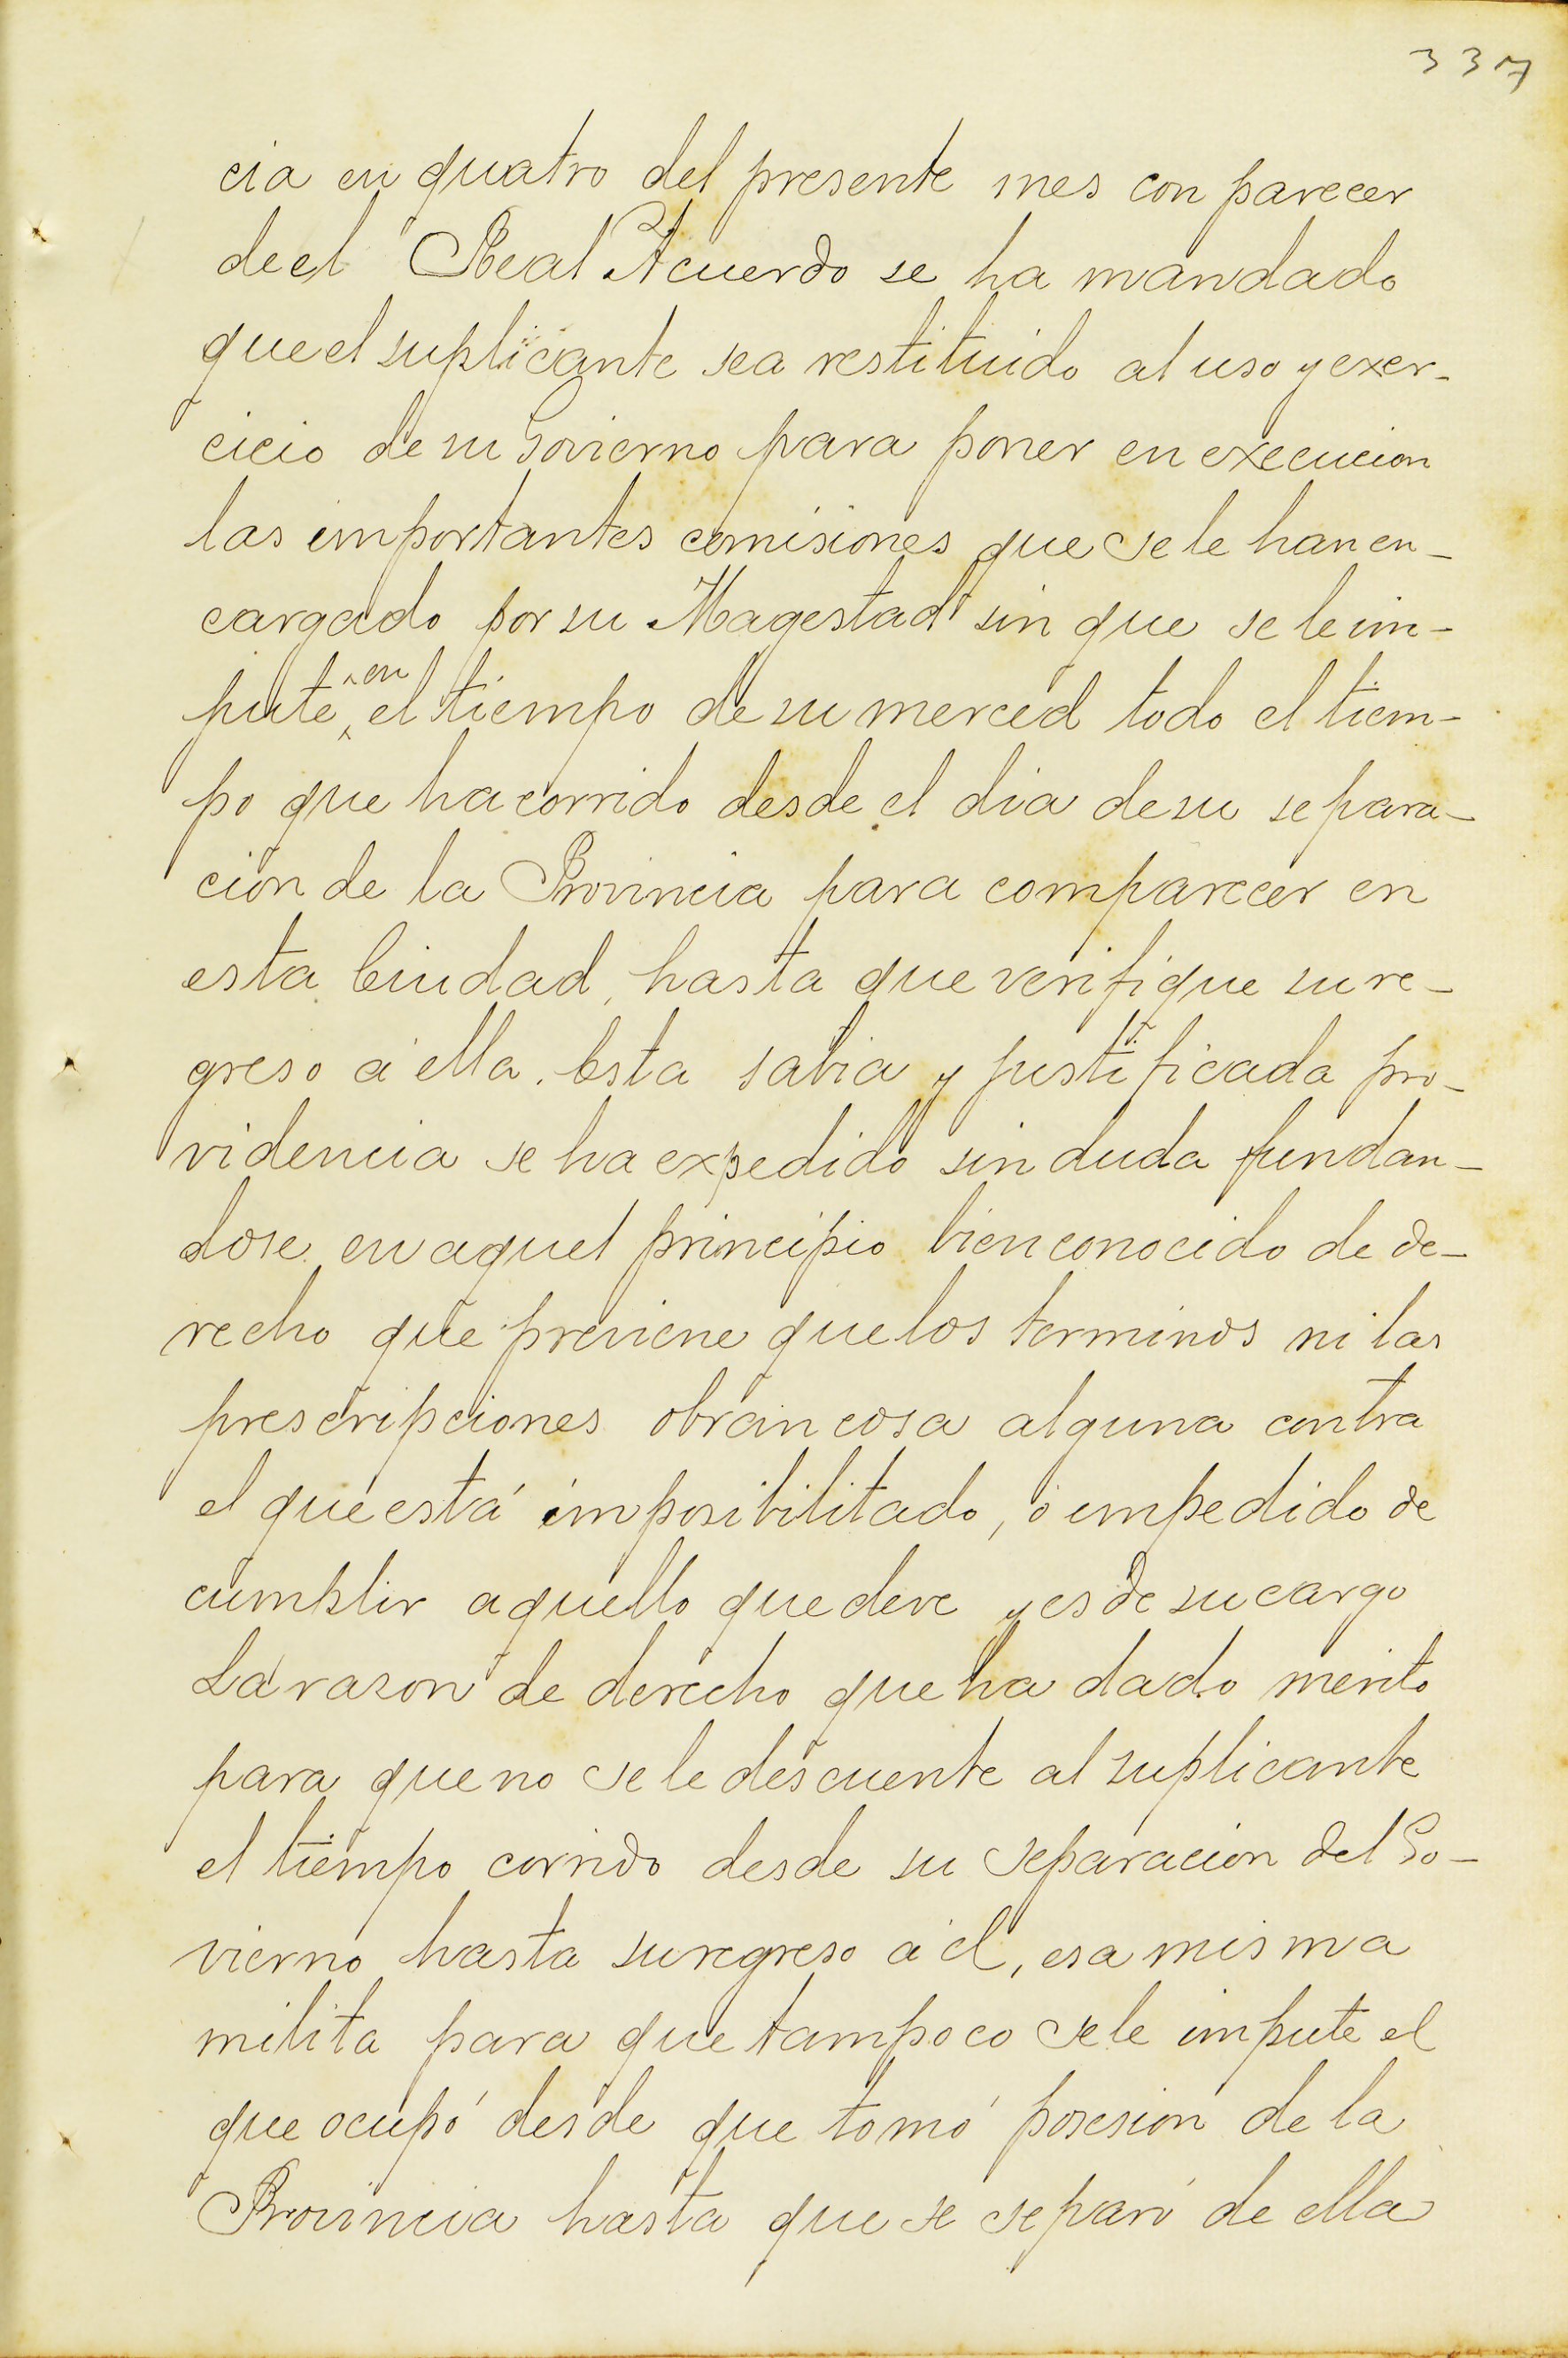 337
cia en quatro del presente mes con parecer
de el Real Acuerdo se ha mandado
que el suplicante sea restituido al uso y exer-
cicio de su Govierno para poner en execucion
las importantes comisiones que se le han en-
cargado por su Magestad sin que se le im-
pute en el tiempo de su merced todo el tiem-
po que ha corrido desde el dia de su separa-
cion de la Provincia para comparecer en
esta Ciudad, hasta que verifique su re-
greso á ella. Esta sabia y justificada pro-
videncia se ha expedido sin duda fundan-
dose en aquel principio bien conocido de de-
recho que previene que los terminos ni las
prescripciones obran cosa alguna contra
el que está imposibilitado, ó impedido de
cumplir aquello que deve y es de su cargo
La razon de derecho que ha dado merito
para que no se le descuente al suplicante
el tiempo corrido desde su separacion del Go-
vierno hasta su regreso á él, esa misma
milita para que tampoco se le impute el
que ocupó desde que tomó posesion de la
Provincia hasta que se separó de ella